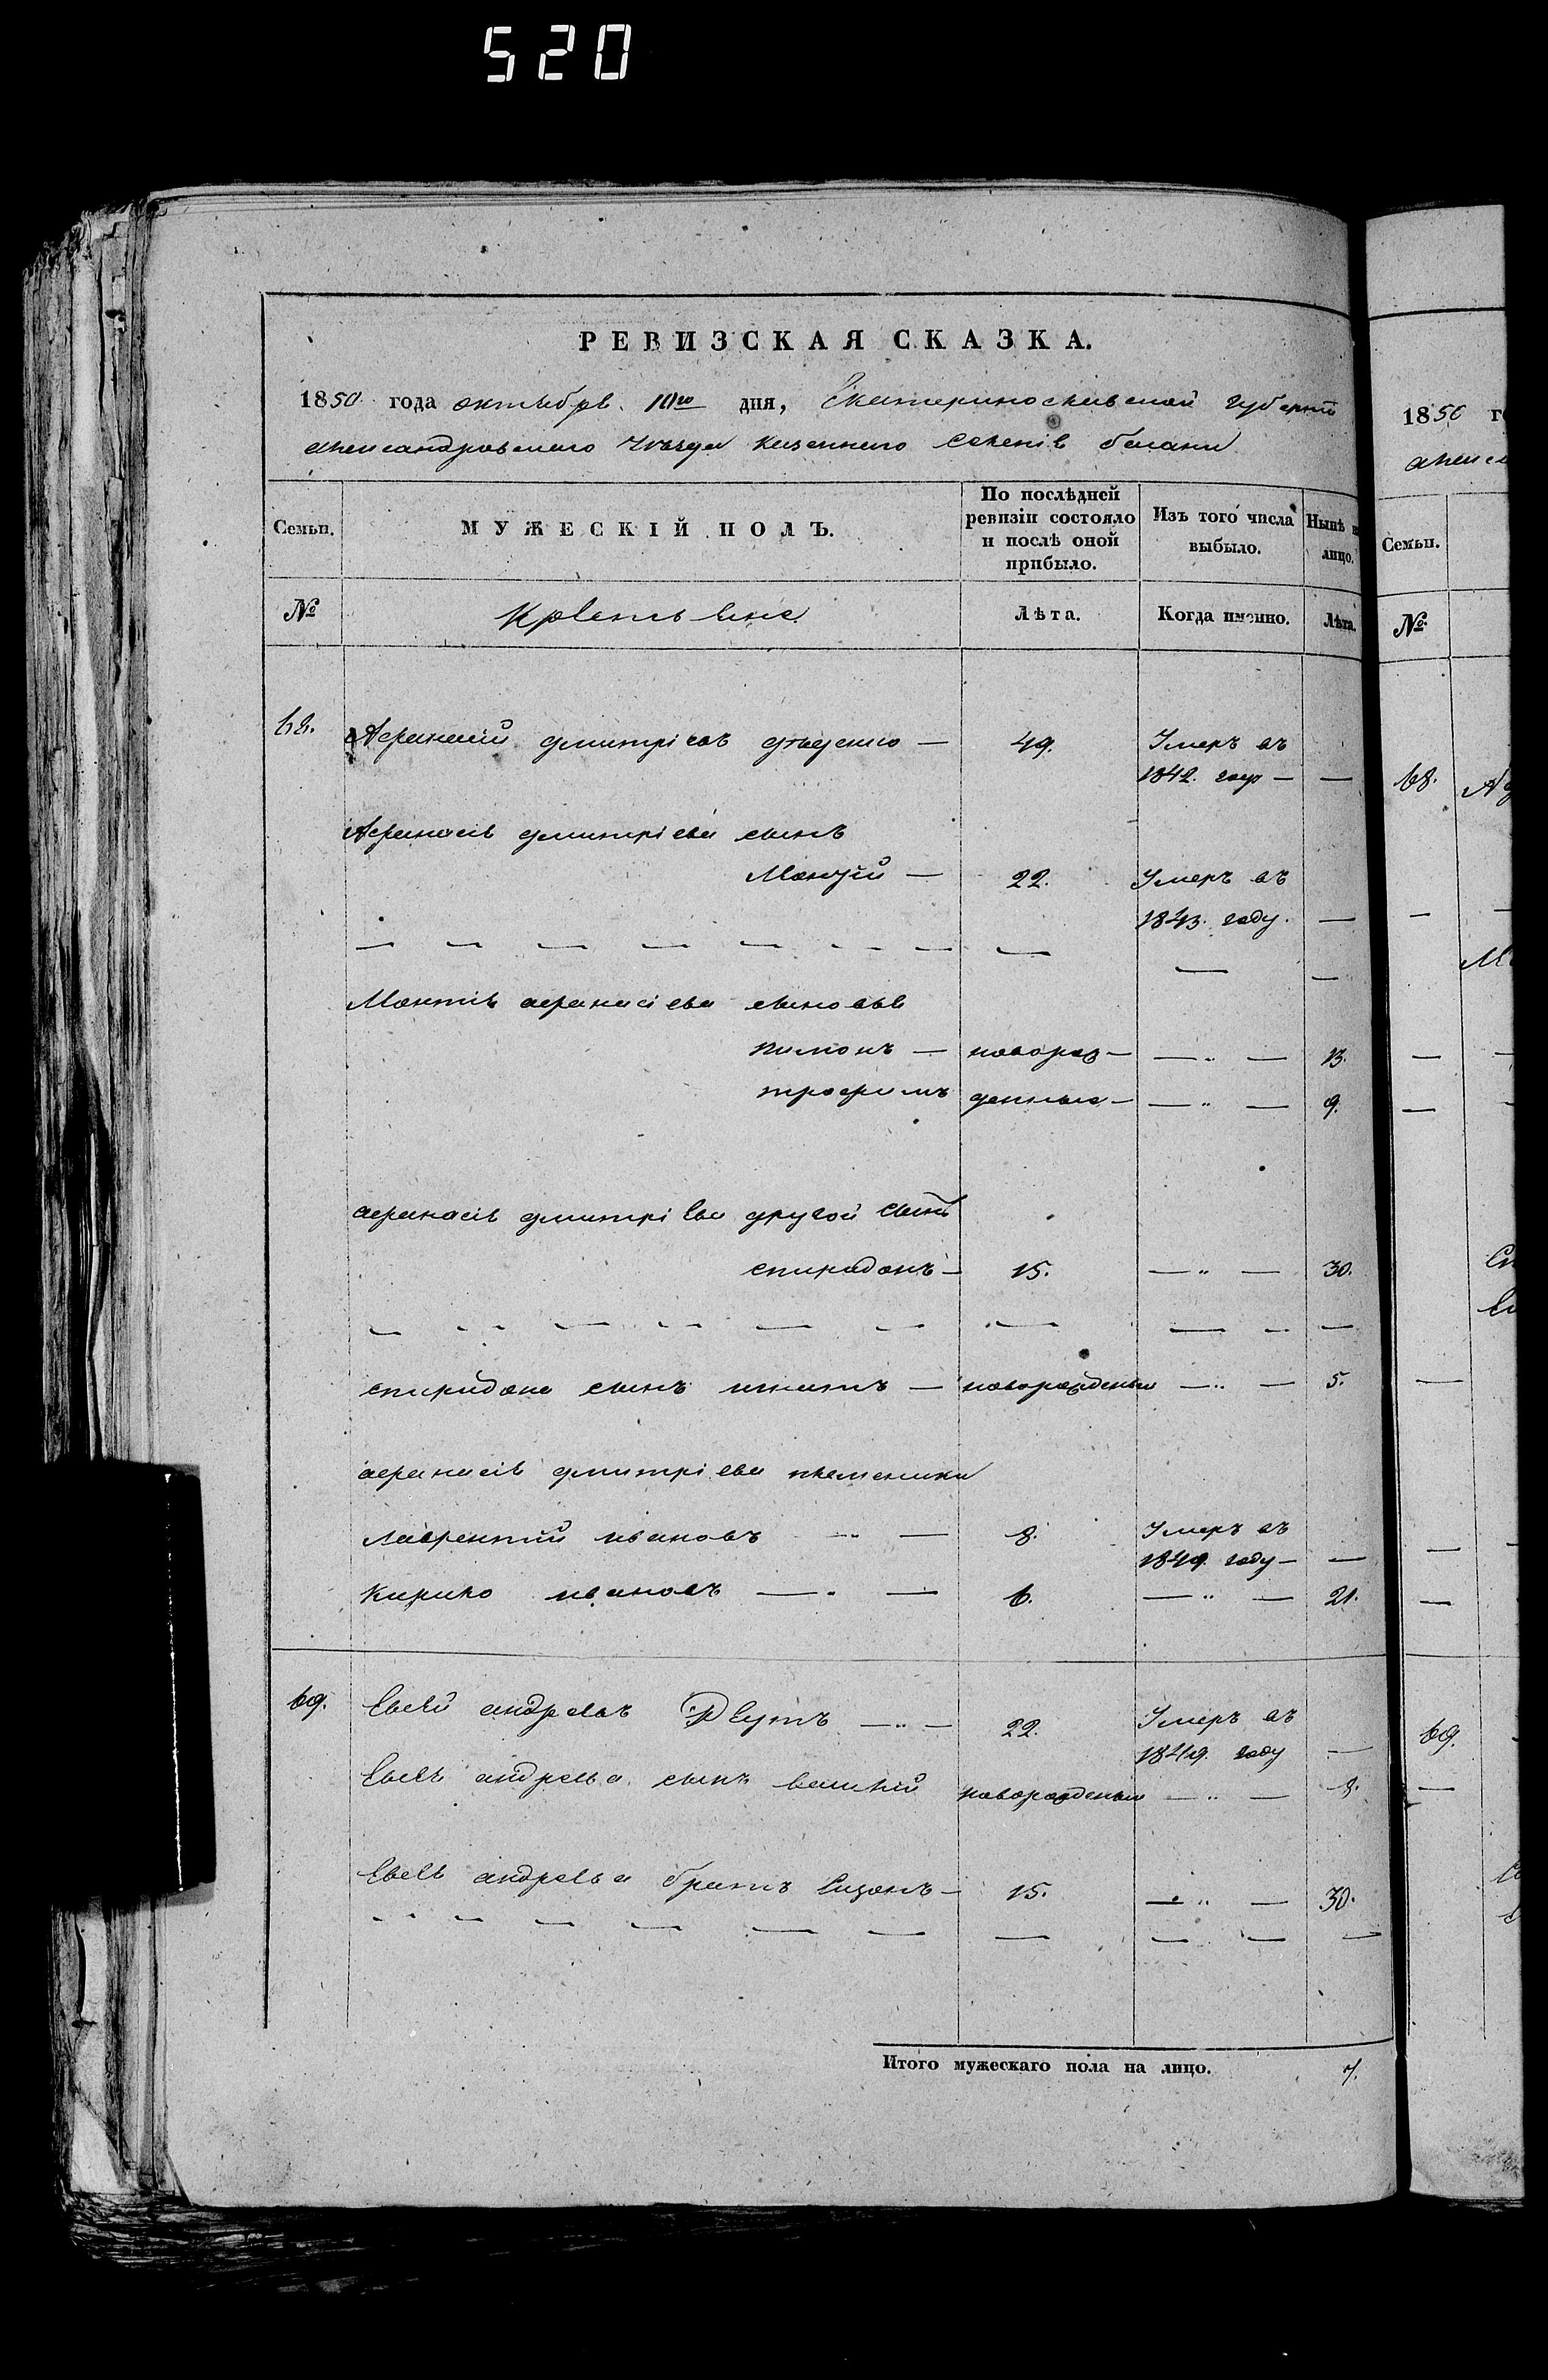 520
РЕВИЗСКАЯ СКАЗКА.
1850 года октября 10го дня, Екатеринославской губернии
александровского уѣзда казенного селенія белани
Семьи. МУЖЕСКІЙ ПОЛЪ. По послѣдней ревизіи состояло и послѣ оной прибыло. Изъ того числа выбыло. Нынѣ на лицо.
№ Крестьяне Лѣта. Когда именно. Лѣта.
68. Афанасій дмитріевъ — 49. Умеръ въ
1842. году — —
Афанасія дмитріева сынъ
22. Умеръ въ
1843. году. —
афанасіева сыновья
пимонъ — новорож— — „ — 13.
трофимъ денные — — „ — 9.
афанасія дмитріева другой сынъ
спиридонъ — 15. — „ — 30.
спиридона сынъ игнатъ — новорожденый — „ — 5.
афанасія дмитріева племеники
Лаврентий ивановъ „ — 8. Умеръ въ
1849. году — —
Кирило ивановъ — „ — 6. — „ — 21.
69. Евсей андреевъ Реутъ — „ — 22. Умеръ въ
1849. году —
Евсея андреева сынъ василий новорожденый — „ — 8.
Евсея андреева братъ Сизонъ — 15. — „ — 30.
Итого мужескаго пола на лицо. 7.
1850 г
Семьи.
№
68.
69.